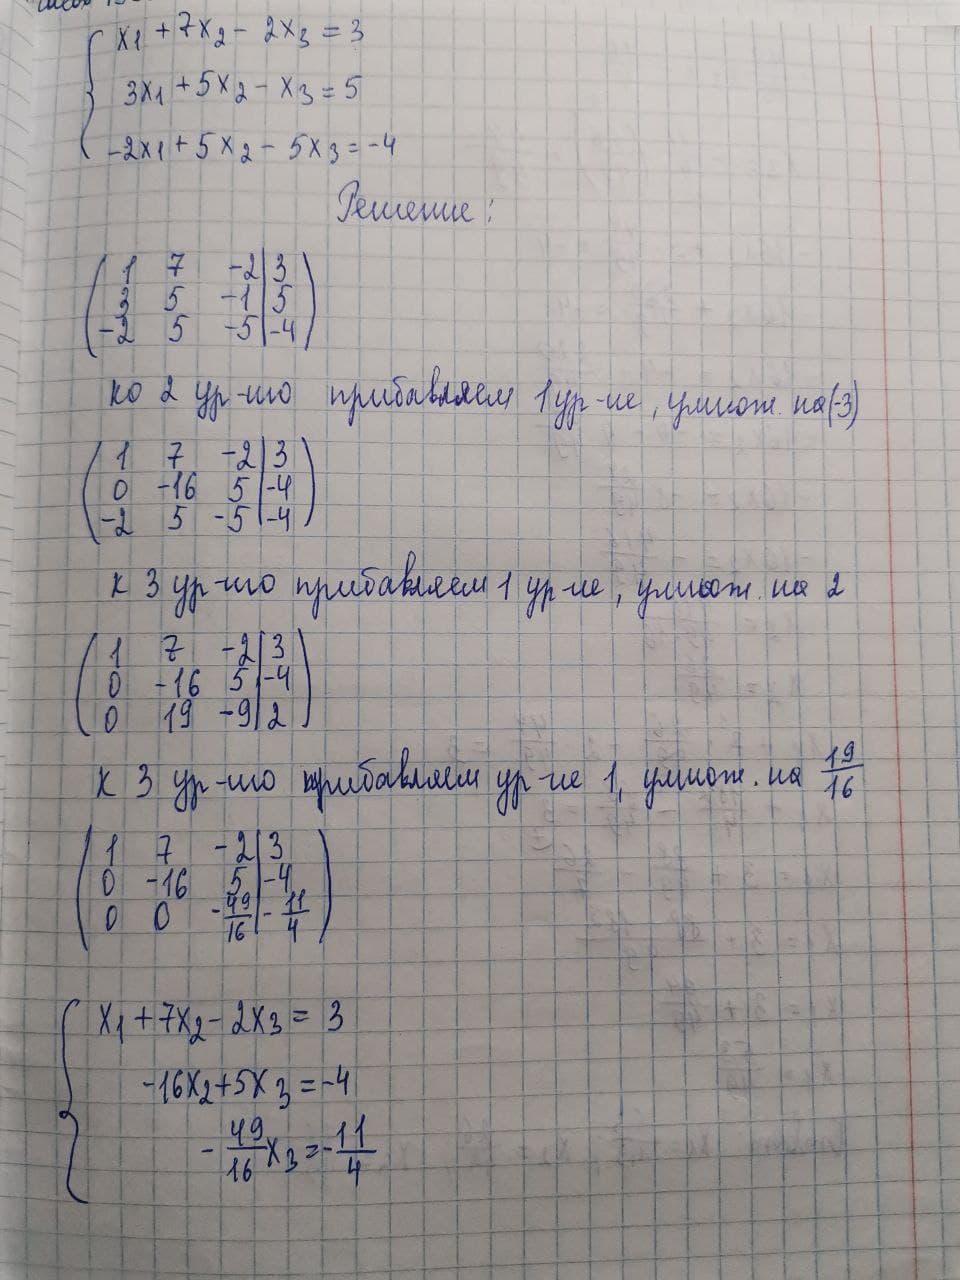 x1 + 7x2 - 2x3 = 3
3x1 + 5x2 - x3 = 5
-2x1 + 5x2 - 5x3 = -4
Решение:
1 7 -2 | 3
3 5 -1 | 5
-2 5 -5 | -4
ко 2 ур-ию прибавляем 1 ур-ие, умнож. на (-3)
1 7 -2 | 3
0 -16 5 | -4
-2 5 -5 | -4
к 3 ур-ию прибавляем 1 ур-ие, умнож. на 2
1 7 -2 | 3
0 -16 5 | -4
0 19 -9 | 2
к 3 ур-ию прибавляем ур-ие 1, умнож. на 19/16
1 7 -2 | 3
0 -16 5 | -4
0 0 -49/16 | -11/4
x1 + 7x2 - 2x3 = 3
-16x2 + 5x3 = -4
-49/16 x3 = -11/4